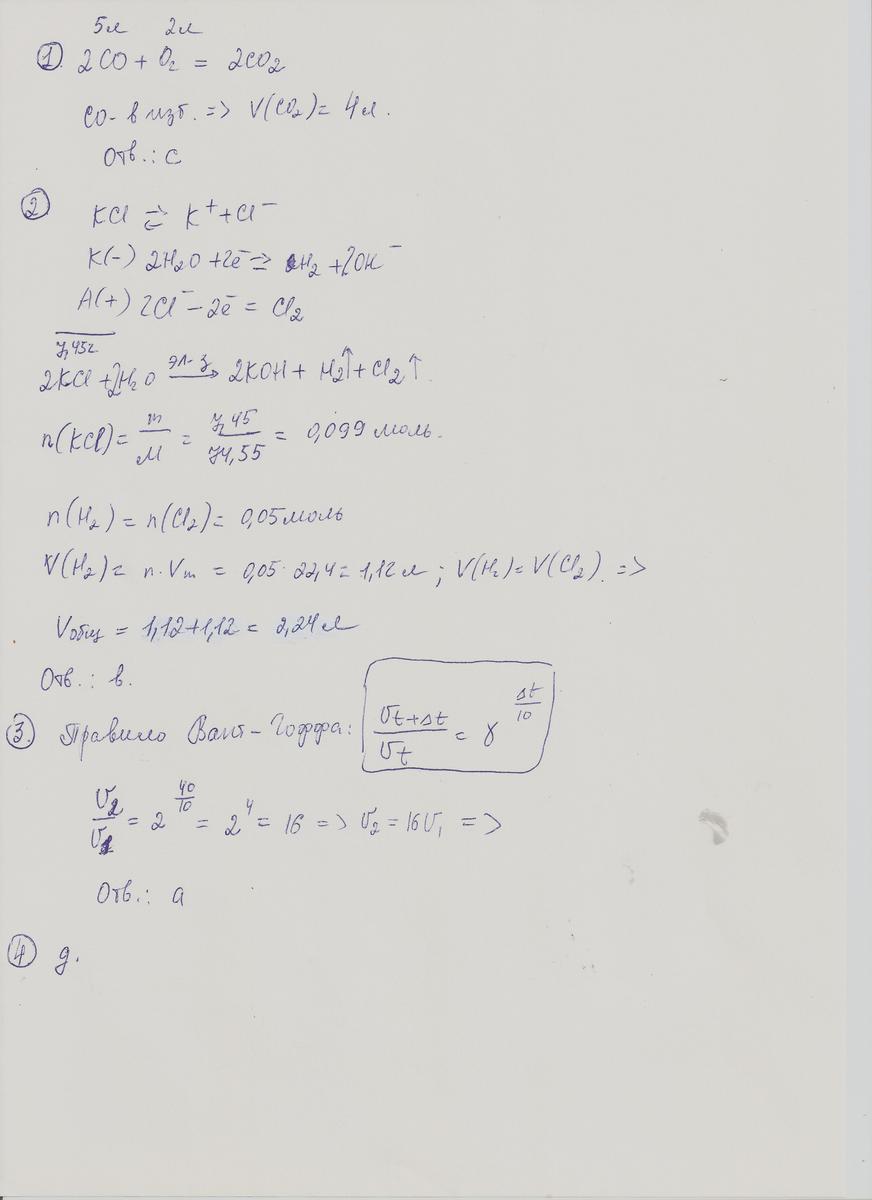 5л 2л
① 2CO + O₂ = 2CO₂
CO - в изб. => V(CO₂) = 4л.
Отв.: c
②
KCl ⇄ K⁺ + Cl⁻
K(-) 2H₂O + 2ē ⇄ H₂ + 2OH⁻
A(+) 2Cl⁻ - 2ē = Cl₂
7,45г
2KCl + 2H₂O эл-з → 2KOH + H₂↑ + Cl₂↑.
n(KCl) = m/M = 7,45/74,55 = 0,099 моль.
n(H₂) = n(Cl₂) = 0,05 моль
V(H₂) = n·Vm = 0,05·22,4 = 1,12 л; V(H₂) = V(Cl₂). =>
Vобщ = 1,12 + 1,12 = 2,24 л
Отв.: в.
③ Правило Вант-Гоффа: Vt+Δt/Vt = γ^Δt/10
V₂/V₁ = 2^40/10 = 2⁴ = 16 => V₂ = 16V₁ =>
Отв.: a
④ д.